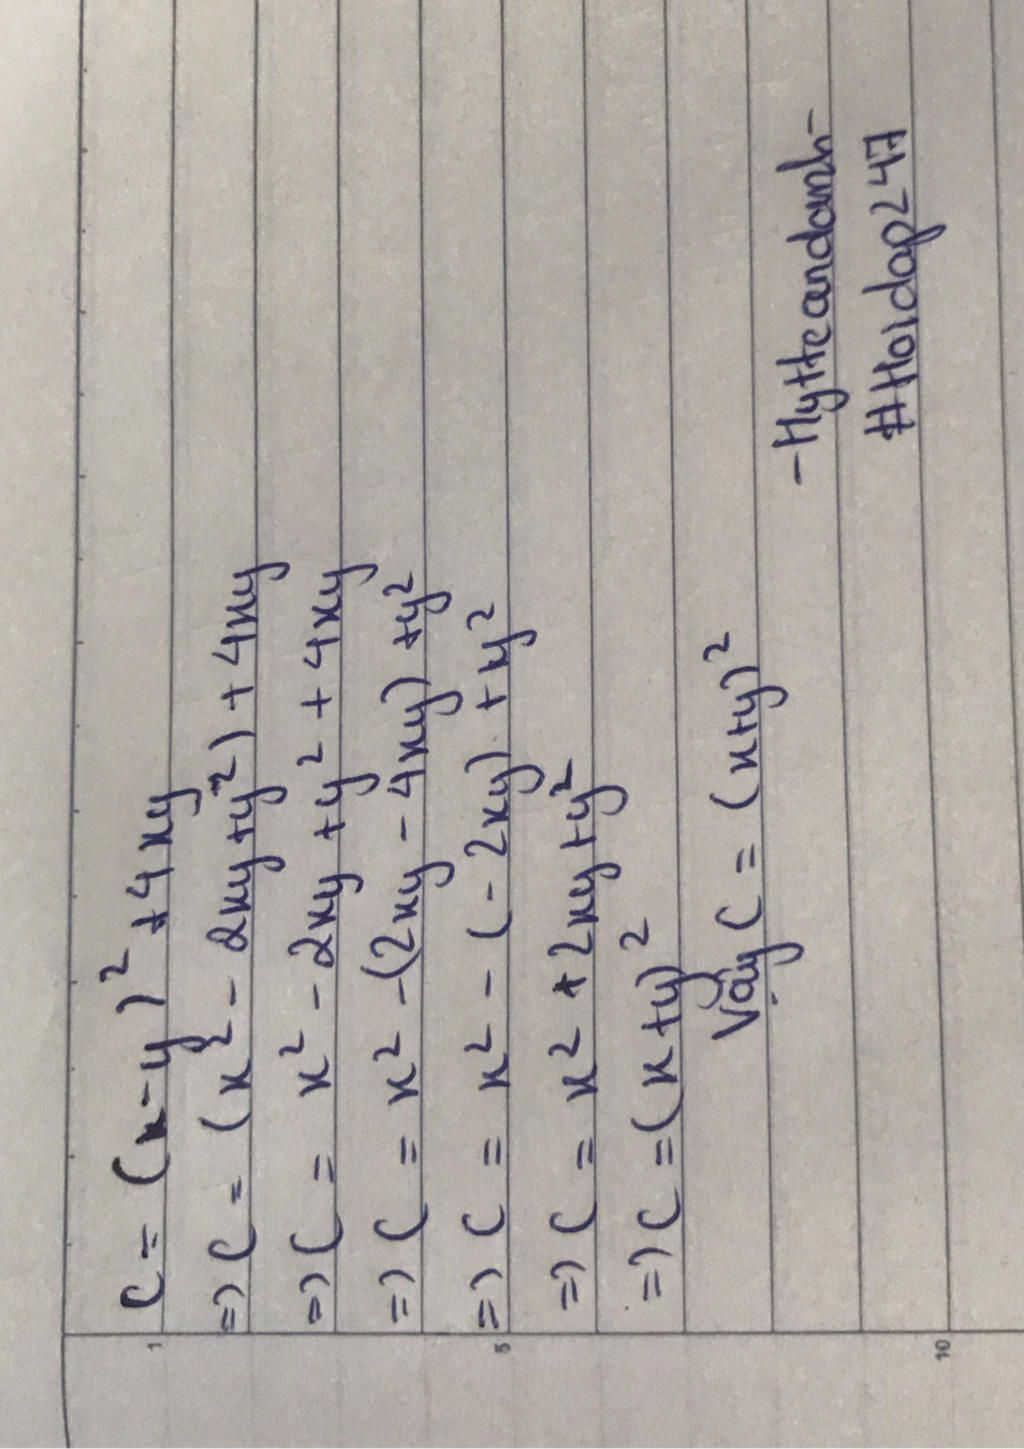 C = (x-y)² + 4xy
=> C = (x² - 2xy+y²) + 4xy
=> C = x² - 2xy + y² + 4xy
=> C = x² -(2xy - 4xy) +y²
=> C = x² - (-2xy) + y²
=> C = x² + 2xy+y²
=> C =(x+y)²
Vậy C = (x+y)²
-Hytteandanh-
#Hoidap247
1
5
10